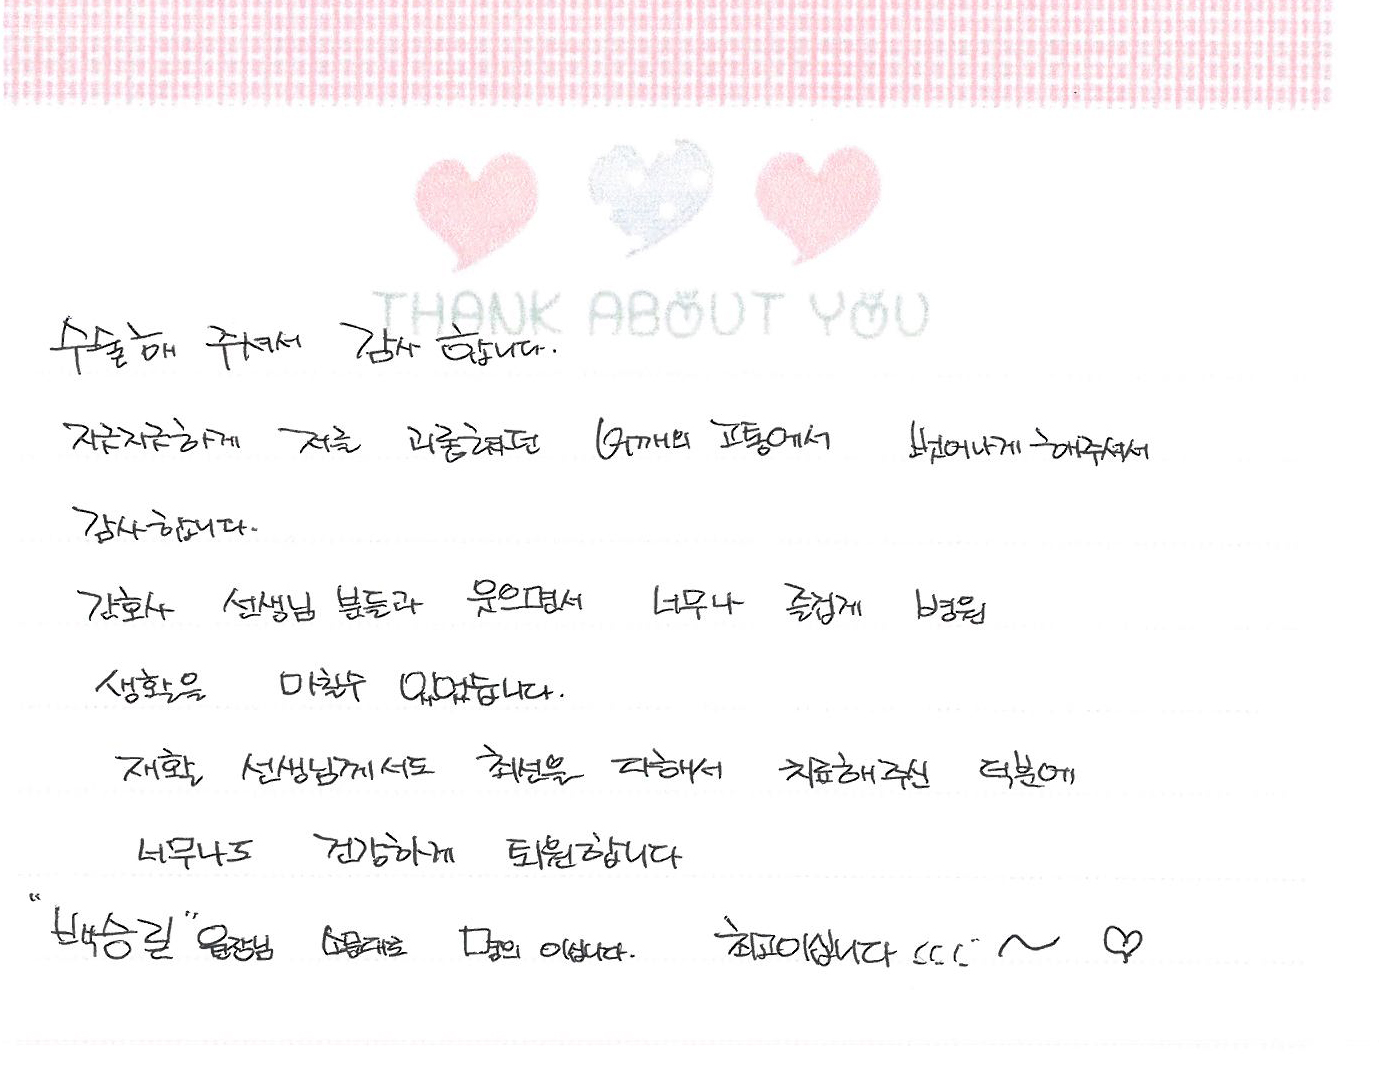 THANK ABOUT YOU
수술해 주셔서 감사 합니다.
지긋지긋하게 저를 괴롭혔던 어깨의 고통에서 벗어나게 해주셔서
감사합니다.
간호사 선생님 분들과 웃으면서 너무나 즐겁게 병원
생활을 마칠수 있었습니다.
재활 선생님께서도 최선을 다해서 치료해주신 덕분에
너무나도 건강하게 퇴원합니다
"백승길" 원장님 소문대로 명의 이십니다. 최고이십니다 ~ ♡